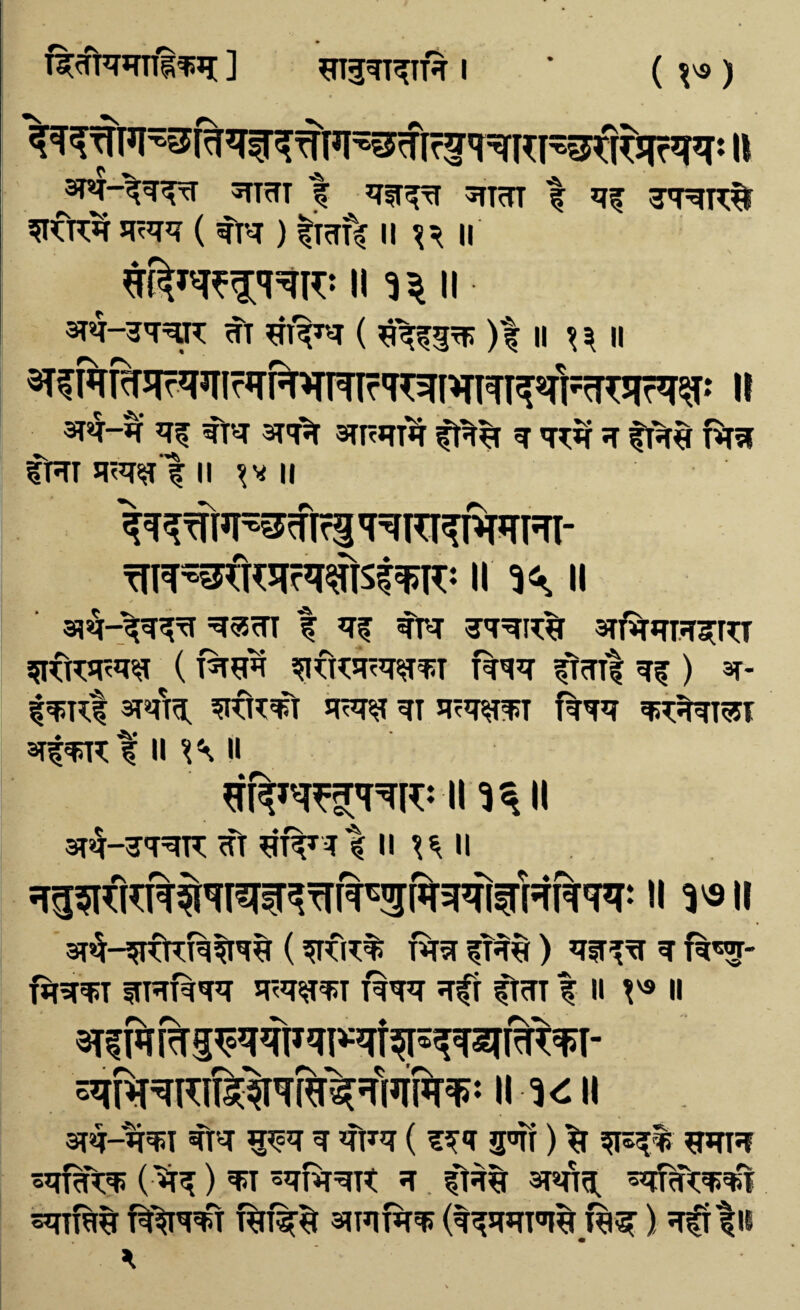 विशेषिकम् ] भाषानुवाद । ( १७ )
देवदत्तोगच्छतियज्ञदत्तोगच्छतीत्युपचाराच्छरीरेप्रत्ययः ॥
अर्थ-देवदत्त जाता है यज्ञदत्त जाता है यह उपचारसे
शरीरमें प्रत्यय ( बोध ) होताहै ॥ १२ ॥
संदिग्धस्तूपचारः ॥ १३ ॥
अर्थ-उपचार तो संदिग्ध ( संदेहयुक्त )है ॥ १३ ॥
अहमितिप्रत्यगात्मनिभावात्परत्राभावादर्थान्तरप्रत्यक्षः ॥
अर्थ-मैं यह बोध अपने आत्मामें होनेसे व परमें न होनेसे भिन्न
होना प्रत्यक्ष है ॥ १४ ॥
देवदत्तोगच्छतीत्युपचारादभिमाना-
त्तावच्छरीरप्रत्यक्षोऽहंकारः ॥ १५ ॥
अर्थ-देवदत्त चलता है यह बोध उपचारसे अभिमानद्वारा
शरीरप्रत्यक्ष ( जिसमें शरीरप्रत्यक्षका विषय होताहै यह ) अ-
हंकारहै अर्थात् शरीरको प्रत्यक्ष वा प्रत्यक्षका विषय करनेवाला
अहंकार है ॥ १५ ॥
संदिग्धस्तूपचारः ॥ १६ ॥
अर्थ-उपचार तो संदिग्ध है ॥ १६ ॥
नतुशरीरविशेषाद्यज्ञदत्तविष्णुमित्रयोर्ज्ञानविषयः ॥ १७ ॥
अर्थ-शरीरविशेषसे ( शरीरके भिन्न होनेसे ) यज्ञदत्त व विष्णु-
मित्रका ज्ञानविषय प्रत्यक्षका विषय नहीं होता है ॥ १७ ॥
अहमितिमुख्ययोग्याभ्यांशब्दवद्व्यतिरेका-
व्यभिचाराद्विशेषसिद्धेर्नागमिकः ॥ १८ ॥
अर्थ-मैंका बोध मुख्य व योग्य ( दृश्य गुण ) से शब्दके समान
व्यतिरेक (भेद ) का व्यभिचार न होनेसे अर्थात् व्यतिरेककी
व्याप्तिसे विशेषकी सिद्धिसे आगमिक (वेदप्रमाणसे सिद्ध ) नहीं है॥
३